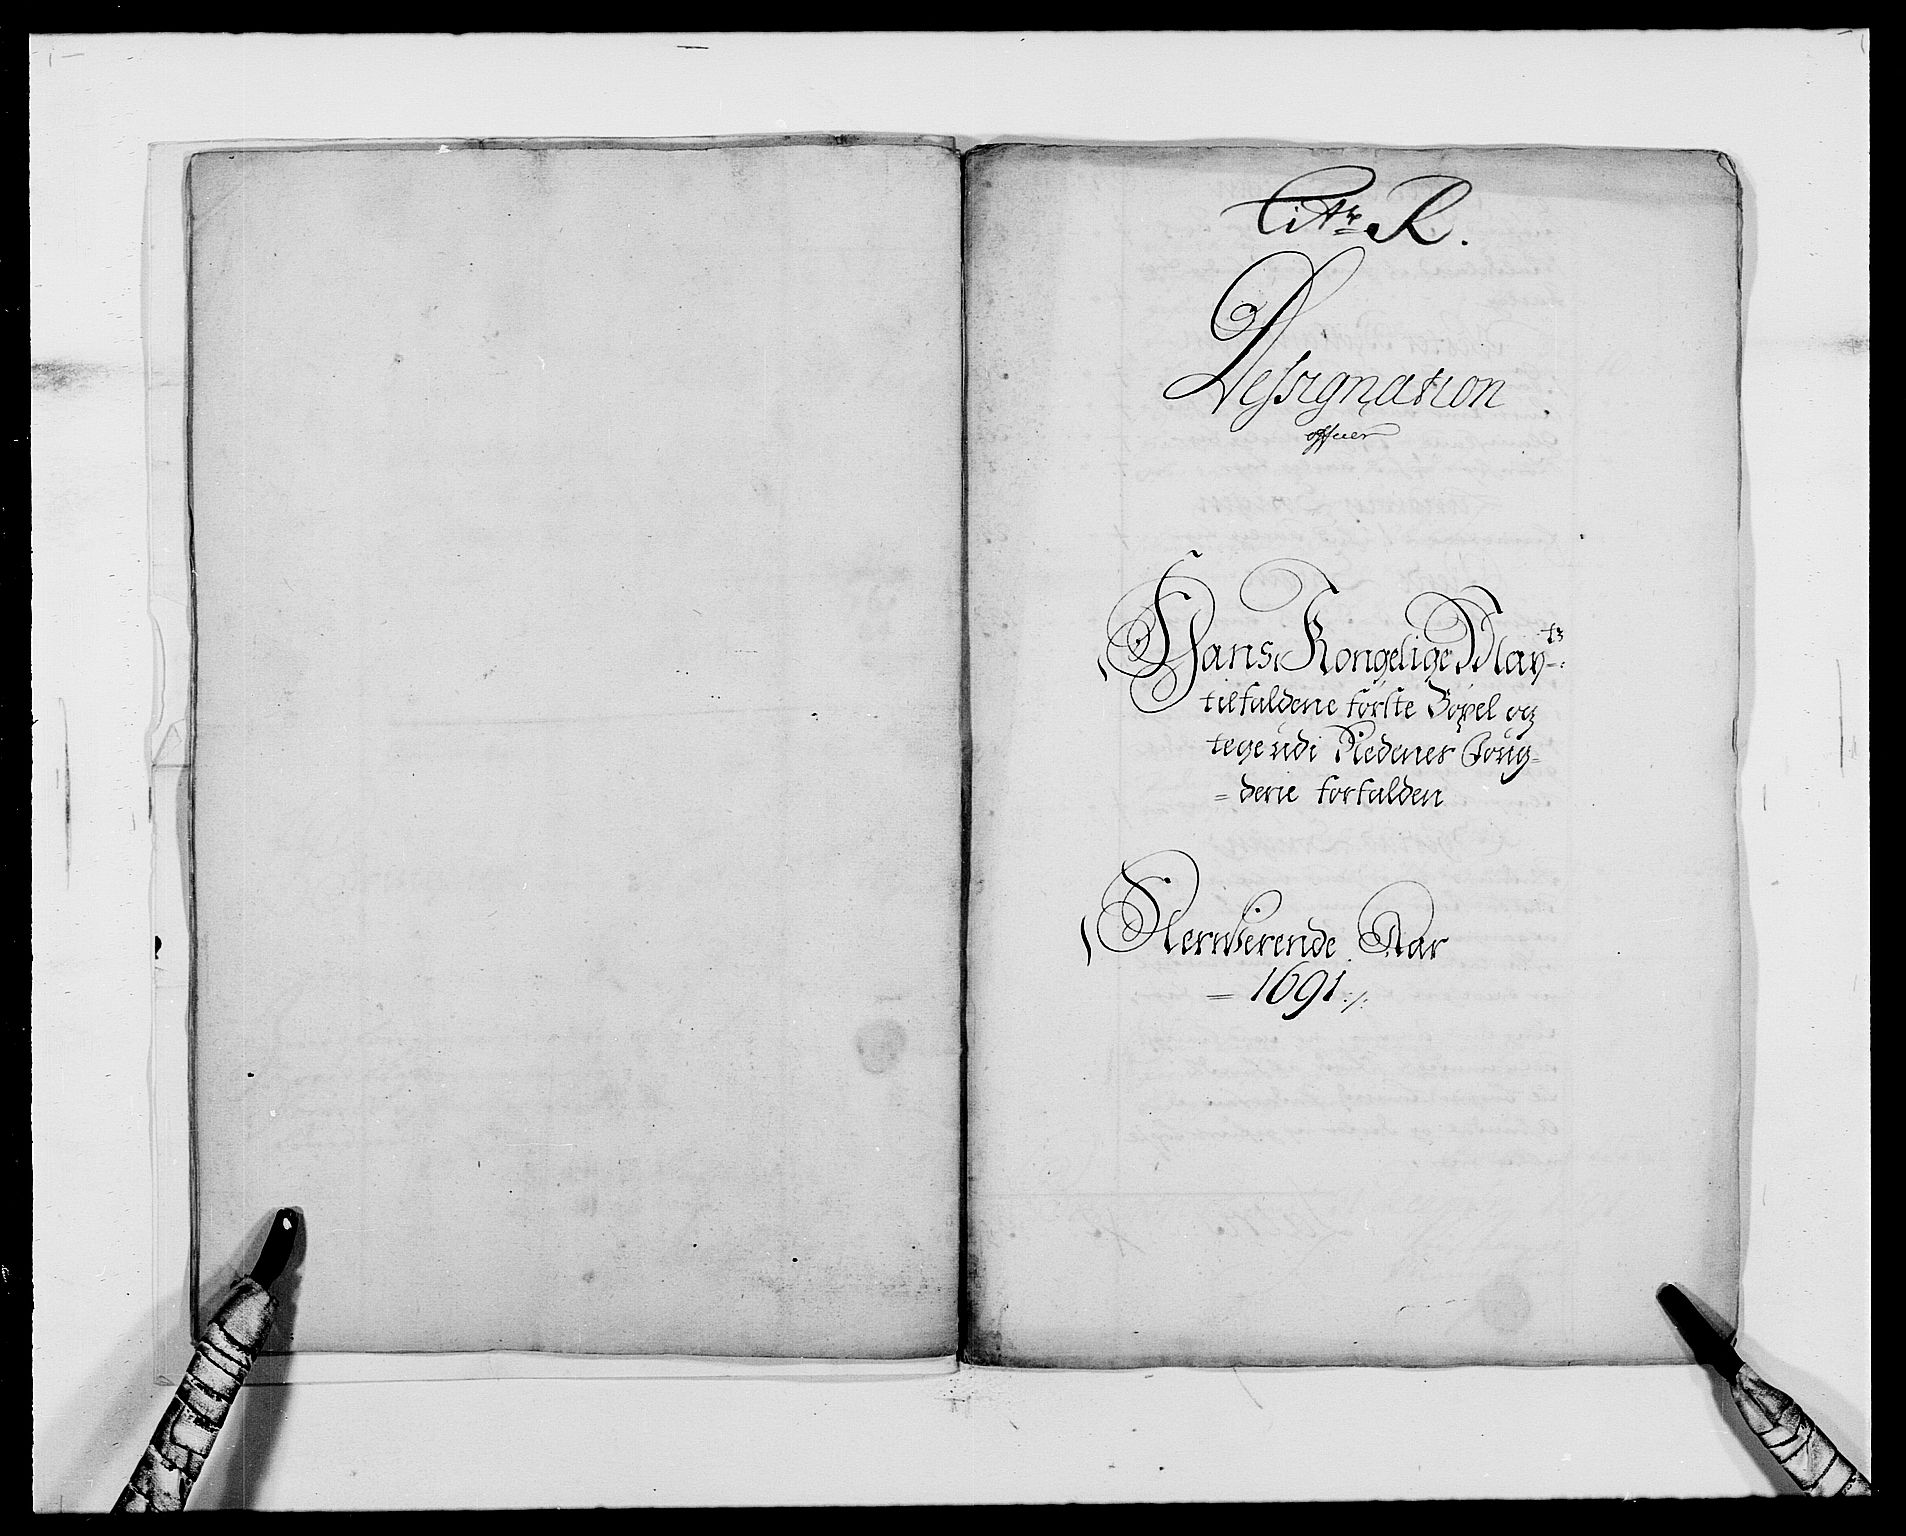 Litr R.
Dessignation
offuer
Hans Kongelige Maytz:
tilfaldene første Bøxel og
tege udi Nedenes Foug=
=derie forfalden
Nerwerende Aar
= 1691 ./.